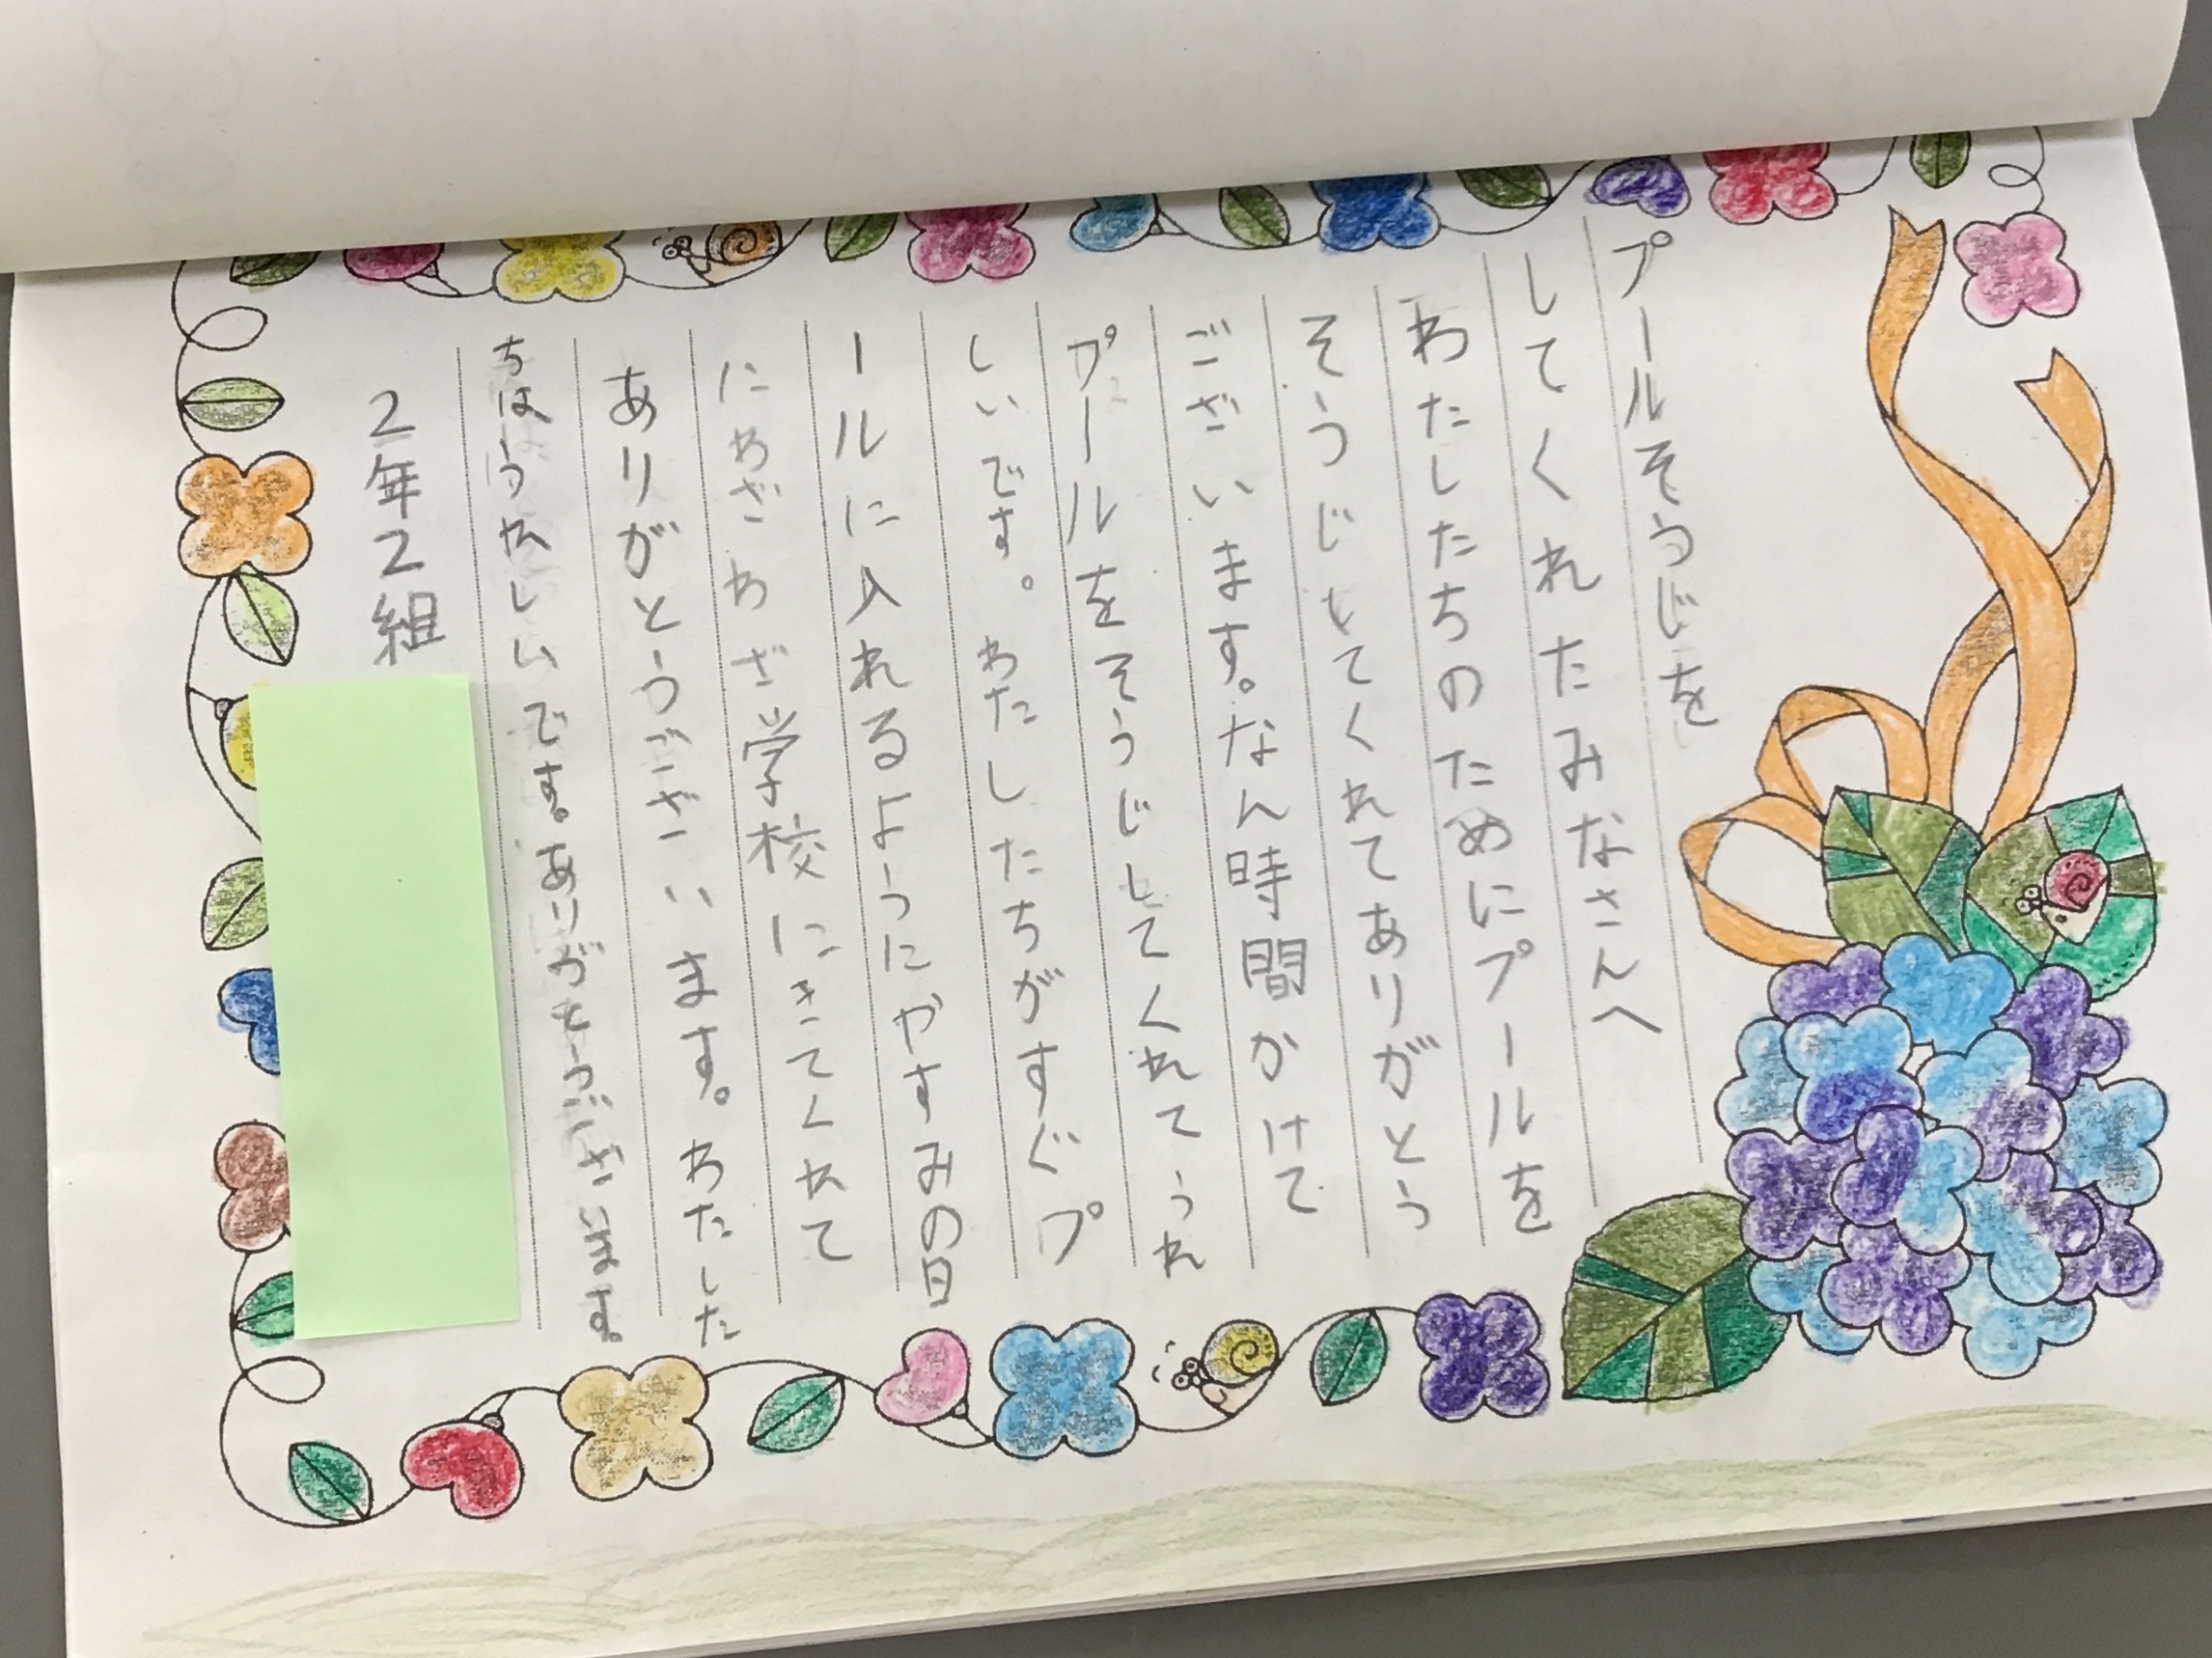 プールそうじを
してくれたみなさんへ
わたしたちのためにプールを
そうじしてくれてありがとう
ございます。なん時間かけて
プールをそうじしてくれてうれ
しいです。わたしたちがすぐプ
ールに入れるようにやすみの日
にわざわざ学校にきてくれて
ありがとうございます。わたした
ちはうれしいです。ありがとうございます。
2年2組